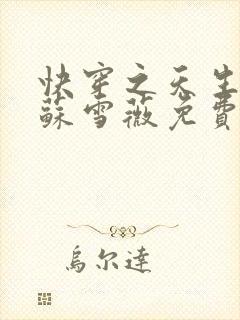 快穿之天生
蘇雪薇免費
烏尔達